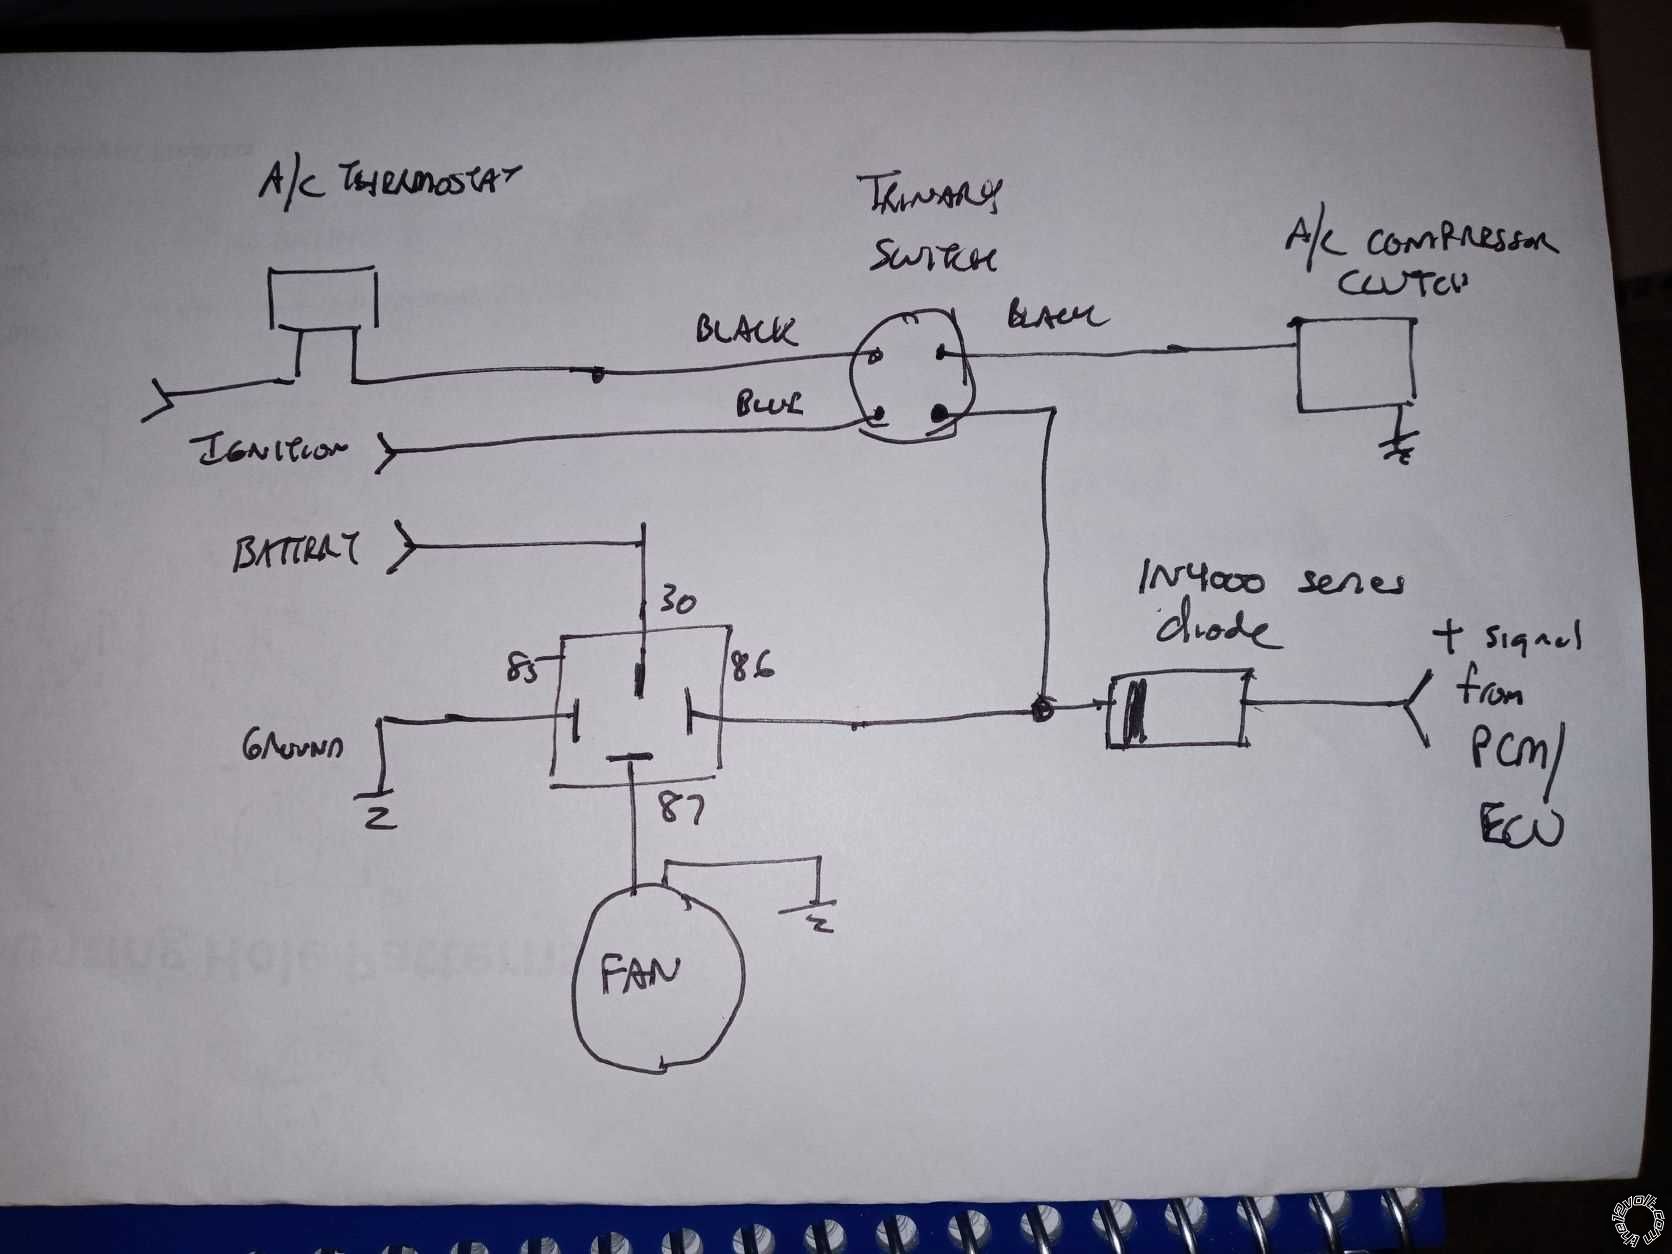 A/C THERMOSTAT
TRINARY
SWITCH
A/C COMPRESSOR
CLUTCH
BLACK
BLACK
BLUE
IGNITION
BATTERY
30
85
86
GROUND
87
FAN
1N4000 series
diode
+ signal
from
PCM/
ECU
Hole Patterns
the12volt.com